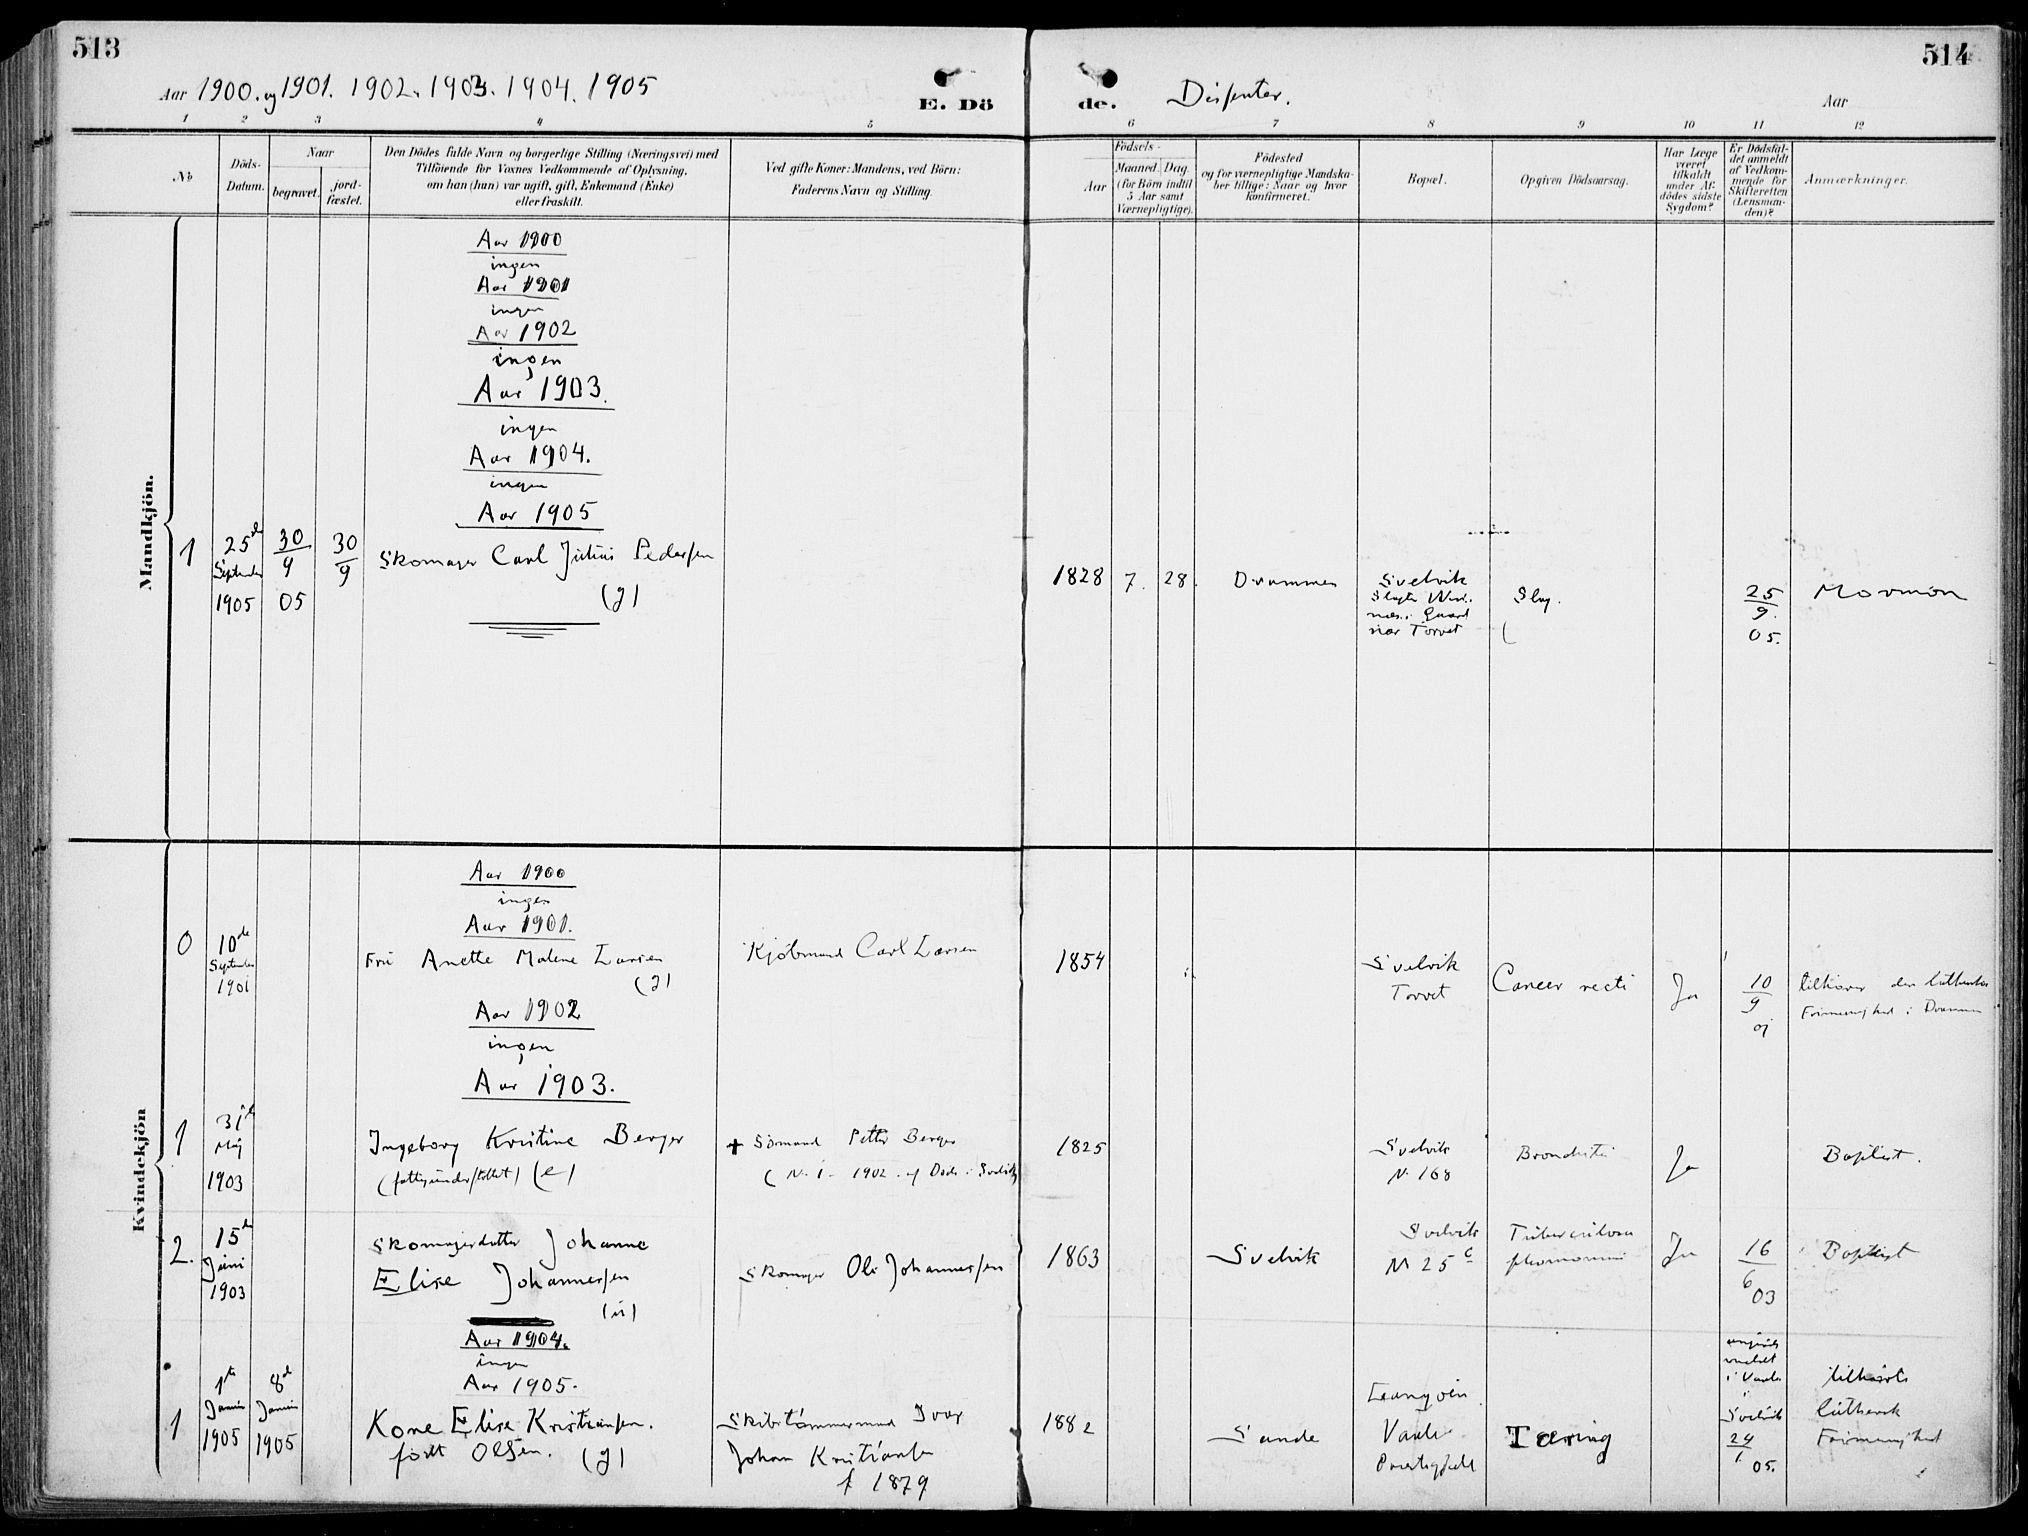 513
514
Aar 1900. og 1901. 1902. 1903. 1904. 1905
E. Dö
de.
Dissenter.
Aar
1 2 3 4 5
6 7 8 9 10 11 12
No
Döds-
Datum.
Naar
begravet.
jord-
fæstet.
Den Dödes fulde Navn og borgerlige Stilling (Næringsvei) med
Tilföiende for Voxnes Vedkommende af Oplysning,
om han (hun) var ugift, gift, Enkemand (Enke)
eller fraskilt.
Ved gifte Koner: Mandens, ved Börn:
Faderens Navn og Stilling.
Födsels-
Aar
Maaned.
Dag.
(for Börn indtil
5 Aar samt
Værnepligtige).
Födested
og for værnepligtige Mandska-
ber tillige: Naar og hvor
konfirmeret.
Bopæl.
Opgiven Dödsaarsag.
Har Læge
været
tilkaldt
under Af-
dödes sidste
Sygdom?
Er Dödsfal-
det anmeldt
af Vedkom-
mende for
Skifteretten
(Lensman-
den)?
Anmærkninger.
Mandkjön.
Aar 1900
ingen
Aar 1901
ingen
Aar 1902
ingen
Aar 1903.
ingen
Aar 1904.
ingen
Aar 1905
1
25de
September
1905
30
9
05
30
9
Skomager Carl Julius Pedersen
(g)
1828
7.
28.
Drammen
Svelvik
Gaard
nær Torvet
Slag.
25
9.
05.
Mormon
Kvindekjön
Aar 1900
ingen
Aar 1901.
0
10de
September
1901
Fru Anette Malene Larsen
(g)
Kjöbmand Carl Larsen
1854
Svelvik
Torvet
Cancer recti
Ja
10
9
01
tilhører den lutherske
Frimenighed i Drammen
Aar 1902
ingen
Aar 1903.
1
31te
Maj
1903
Ingeborg Kristine Berger
(fattigunderstøttet) (e)
+ Sömand Petter Berger
1825
Svelvik
N. 168
Ja
Baptist.
2.
15de
Juni
1903
Skomagerdatter Johanne
Elise Johannessen
(u)
Skomager Ole Johannessen
1863
Svelvik
Svelvik
N 25 c
Ja
16
6
03
Baptist
Aar 1904.
ingen
Aar 1905.
1
1te
1905
8de
1905
Kone Elise Kristiansen.
født Olsen. (g)
Skibstömmermand Ivar
Johan Kristiansen
f 1879
1882
Sande
Tæring
i
Svelvik
24
1
05.
luthersk
Frimenighed